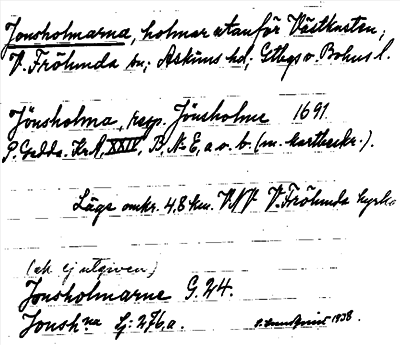 Jonsholmarna, holmar utanför Västkusten,
V. Frölunda sn; Askims hd; Gtbgs o. Bohus l.
Jönsholma, resp. Jönsholme 1691
P. Gedda. Kr A, XXIV, B, N. E, a o. b. (m. kartbeskr.).
Läge omkr. 4,8 km. VNV V. Frölunda kyrka
(ek. ej utgiven)
Jonsholmarne G. 24.
Jonsh:na Lj: 276, a.
1938.